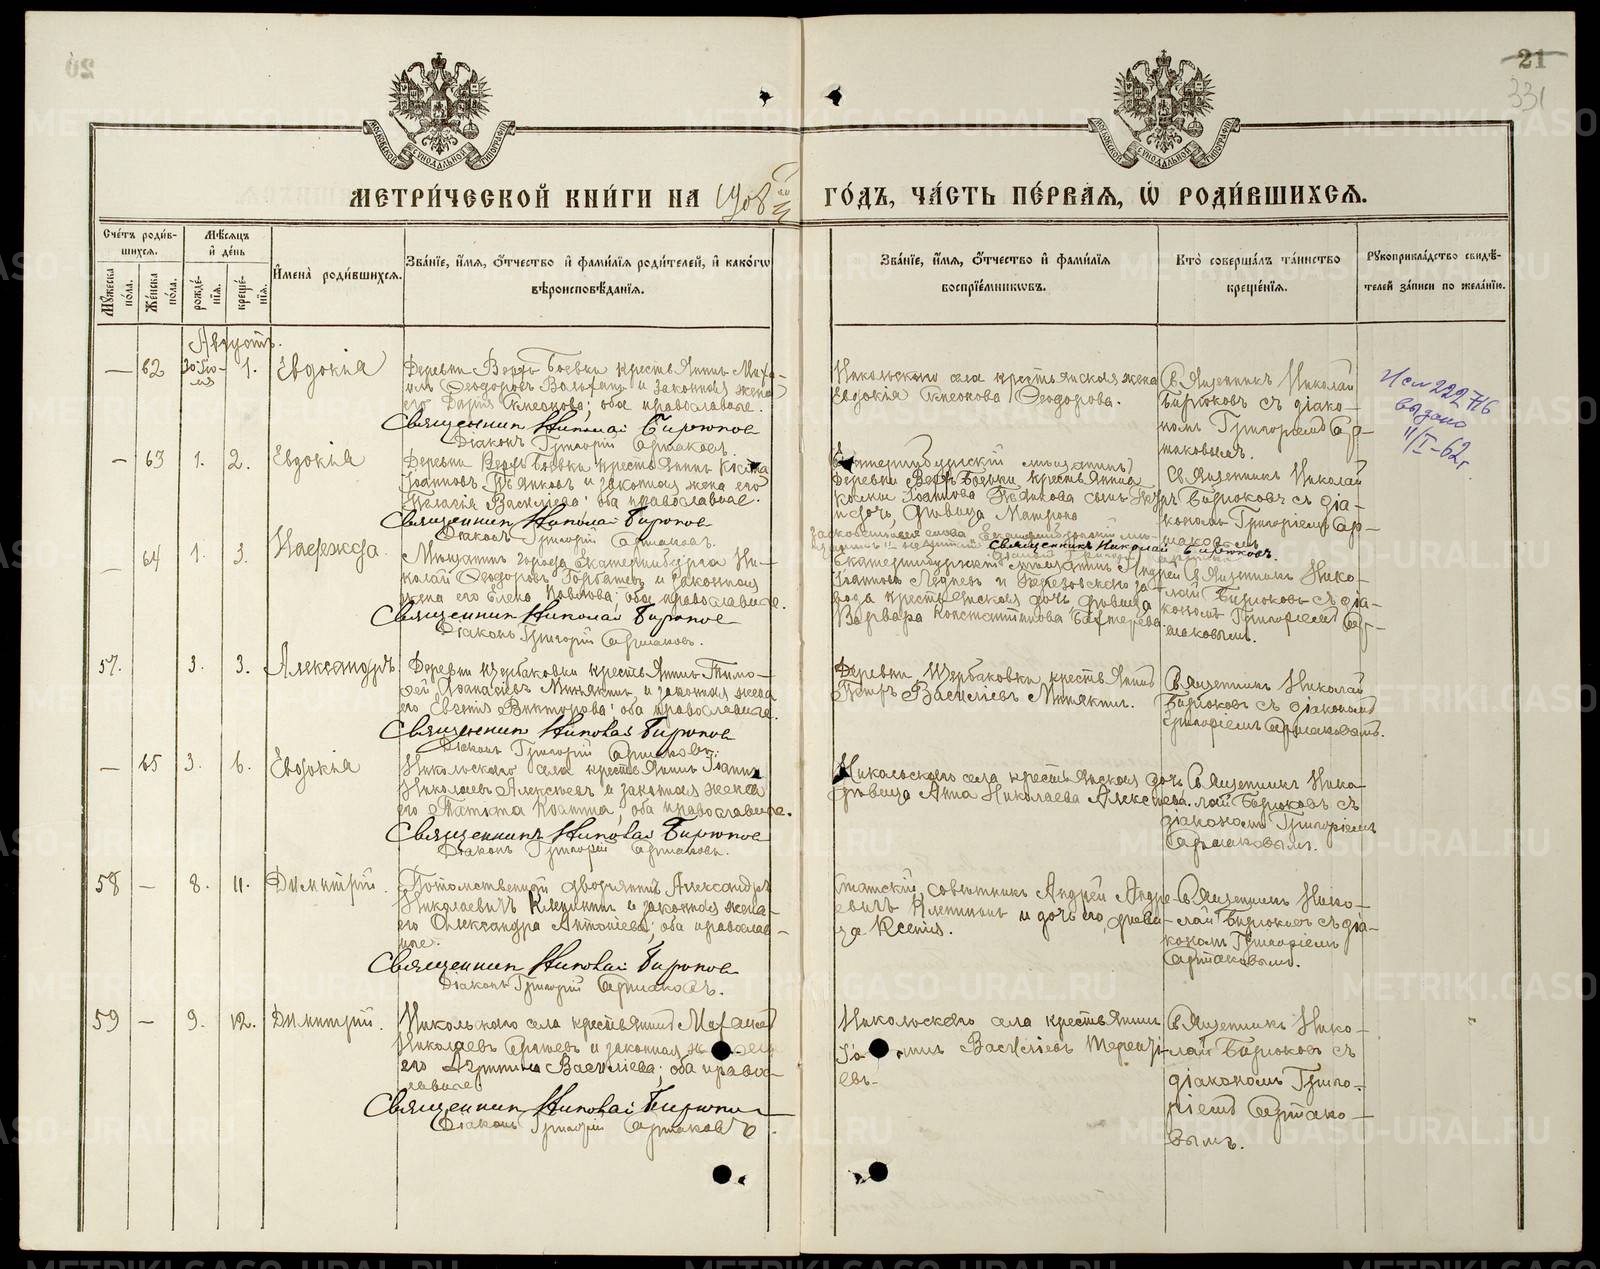 21
331
МОСКОВСКОЙ СѴНОДАЛЬНОЙ ТИПОГРАФІИ
МОСКОВСКОЙ СѴНОДАЛЬНОЙ ТИПОГРАФІИ
МЕТРИ́ЧЕСКОЙ КНИ́ГИ НА 1908 ГО́ДЪ, ЧА́СТЬ ПЕ́РВАѦ, Ѡ҆ РОДИ́ВШИХСѦ.
Сче́тъ роди́в-
шихсѧ.
Мꙋ́жеска по́ла.
Же́нска по́ла.
Мѣ́сѧцъ
и҆ де́нь
рожде́-
нїѧ.
креще́-
нїѧ.
И҆мена̀ роди́вшихсѧ.
Зва́нїе, и҆́мѧ, ѻ҆́тчество и҆ фами́лїѧ роди́телей, и҆ како́гѡ
вѣроисповѣ́данїѧ.
Зва́нїе, и҆́мѧ, ѻ҆́тчество и҆ фами́лїѧ
воспрїе́мниковъ.
Кто̀ соверша́лъ та́инство
креще́нїѧ.
Рꙋкоприкла́дство свидѣ́-
телей за́писи по жела́нїю.
Августъ.
— 62 30 Iю-
ля 1. Евдокія
крестьянинъ Миха-
илъ Ѳеодоровъ и законная жена
его Дарія Симеонова; оба православные.
Священник Николай Бирюков
Діаконъ Григорій Армаковъ.
Никольскаго села крестьянская жена
Евдокія Симеонова Ѳеодорова.
Священникъ Николай
Бирюковъ съ діако-
номъ Григоріемъ Ар-
маковымъ.
222716
выдано
11/I-62г.
— 63 1. 2. Евдокія
крестьянинъ Косма
Іоанновъ Пьянковъ и законная жена его
Пелагія Василіева; оба православные.
Священник Николай Бирюков
Діаконъ Григорій Армаковъ.
Екатеринбургскій мѣщанинъ
крестьянина
Космы Іоаннова Пьянкова
и дочь, дѣвица Матрона
Священникъ Николай Бирюковъ.
Священникъ Николай
Бирюковъ съ діа-
кономъ Григоріемъ Ар-
маковымъ
— 64 1. 3. Надежда.
Мѣщанинъ города Екатеринбурга Ни-
колай Ѳеодоровъ Горбатевъ и законная
жена его Елена Павлова; оба православные.
Священник Николай Бирюков
Діаконъ Григорій Армаковъ.
Екатеринбургскій мѣщанинъ Андрей
Іоанновъ Ледневъ и Березовского за-
вода крестьянская дочь, дѣвица
Варвара Константинова Бахтерева.
Священникъ Нико-
лай Бирюковъ съ діа-
кономъ Григоріемъ Ар-
маковымъ.
57. 3. 3. Александръ
Деревни Щербаковки крестьянинъ Тимо-
ѳей Аѳанасіевъ Минякинъ, и законная жена
его Евгенія Викторова; оба православные.
Священник Николай Бирюков
Діаконъ Григорій Армаковъ.
Деревни Щербаковки крестьянинъ
Петръ Василіевъ Минякинъ.
Священникъ Николай
Бирюковъ съ діакономъ
Григоріемъ Армаковымъ.
— 65 3. 6. Евдокія
Никольскаго села крестьянинъ Іоаннъ
Николаевъ Алексѣевъ и законная жена
его Татіана Іоаннова, оба православные.
Священникъ Николай Бирюков
Діаконъ Григорій Армаковъ.
Никольскаго села крестьянская дочь
дѣвица Анна Николаева Алексѣева.
Священникъ Нико-
лай Бирюковъ съ
діакономъ Григоріемъ
Армаковымъ.
58 — 8. 11. Димитрій.
Потомственный дворянинъ Александръ
Николаевичъ Клепининъ и законная жена
его Александра Антоніева; оба православ-
ные.
Священник Николай Бирюков
Діаконъ Григорій Армаковъ.
Статскій совѣтникъ Андрей Андре-
евичъ Клепининъ и дочь его, дѣви-
ца Ксенія.
Священникъ Нико-
лай Бирюковъ съ діа-
кономъ Григоріемъ
Армаковымъ.
59 — 9. 12. Димитрій.
Никольскаго села крестьянинъ
Николаевъ и законная жена
его Василіева; оба право-
славные.
Священник Николай Бирюков
Діаконъ Григорій Армаковъ.
Никольскаго села крестьянинъ
Василіевъ Терентi-
евъ.
Священникъ Нико-
лай Бирюковъ съ
діакономъ Григо-
ріемъ Армако-
вымъ.
METRIKI.GASO-URAL.RU